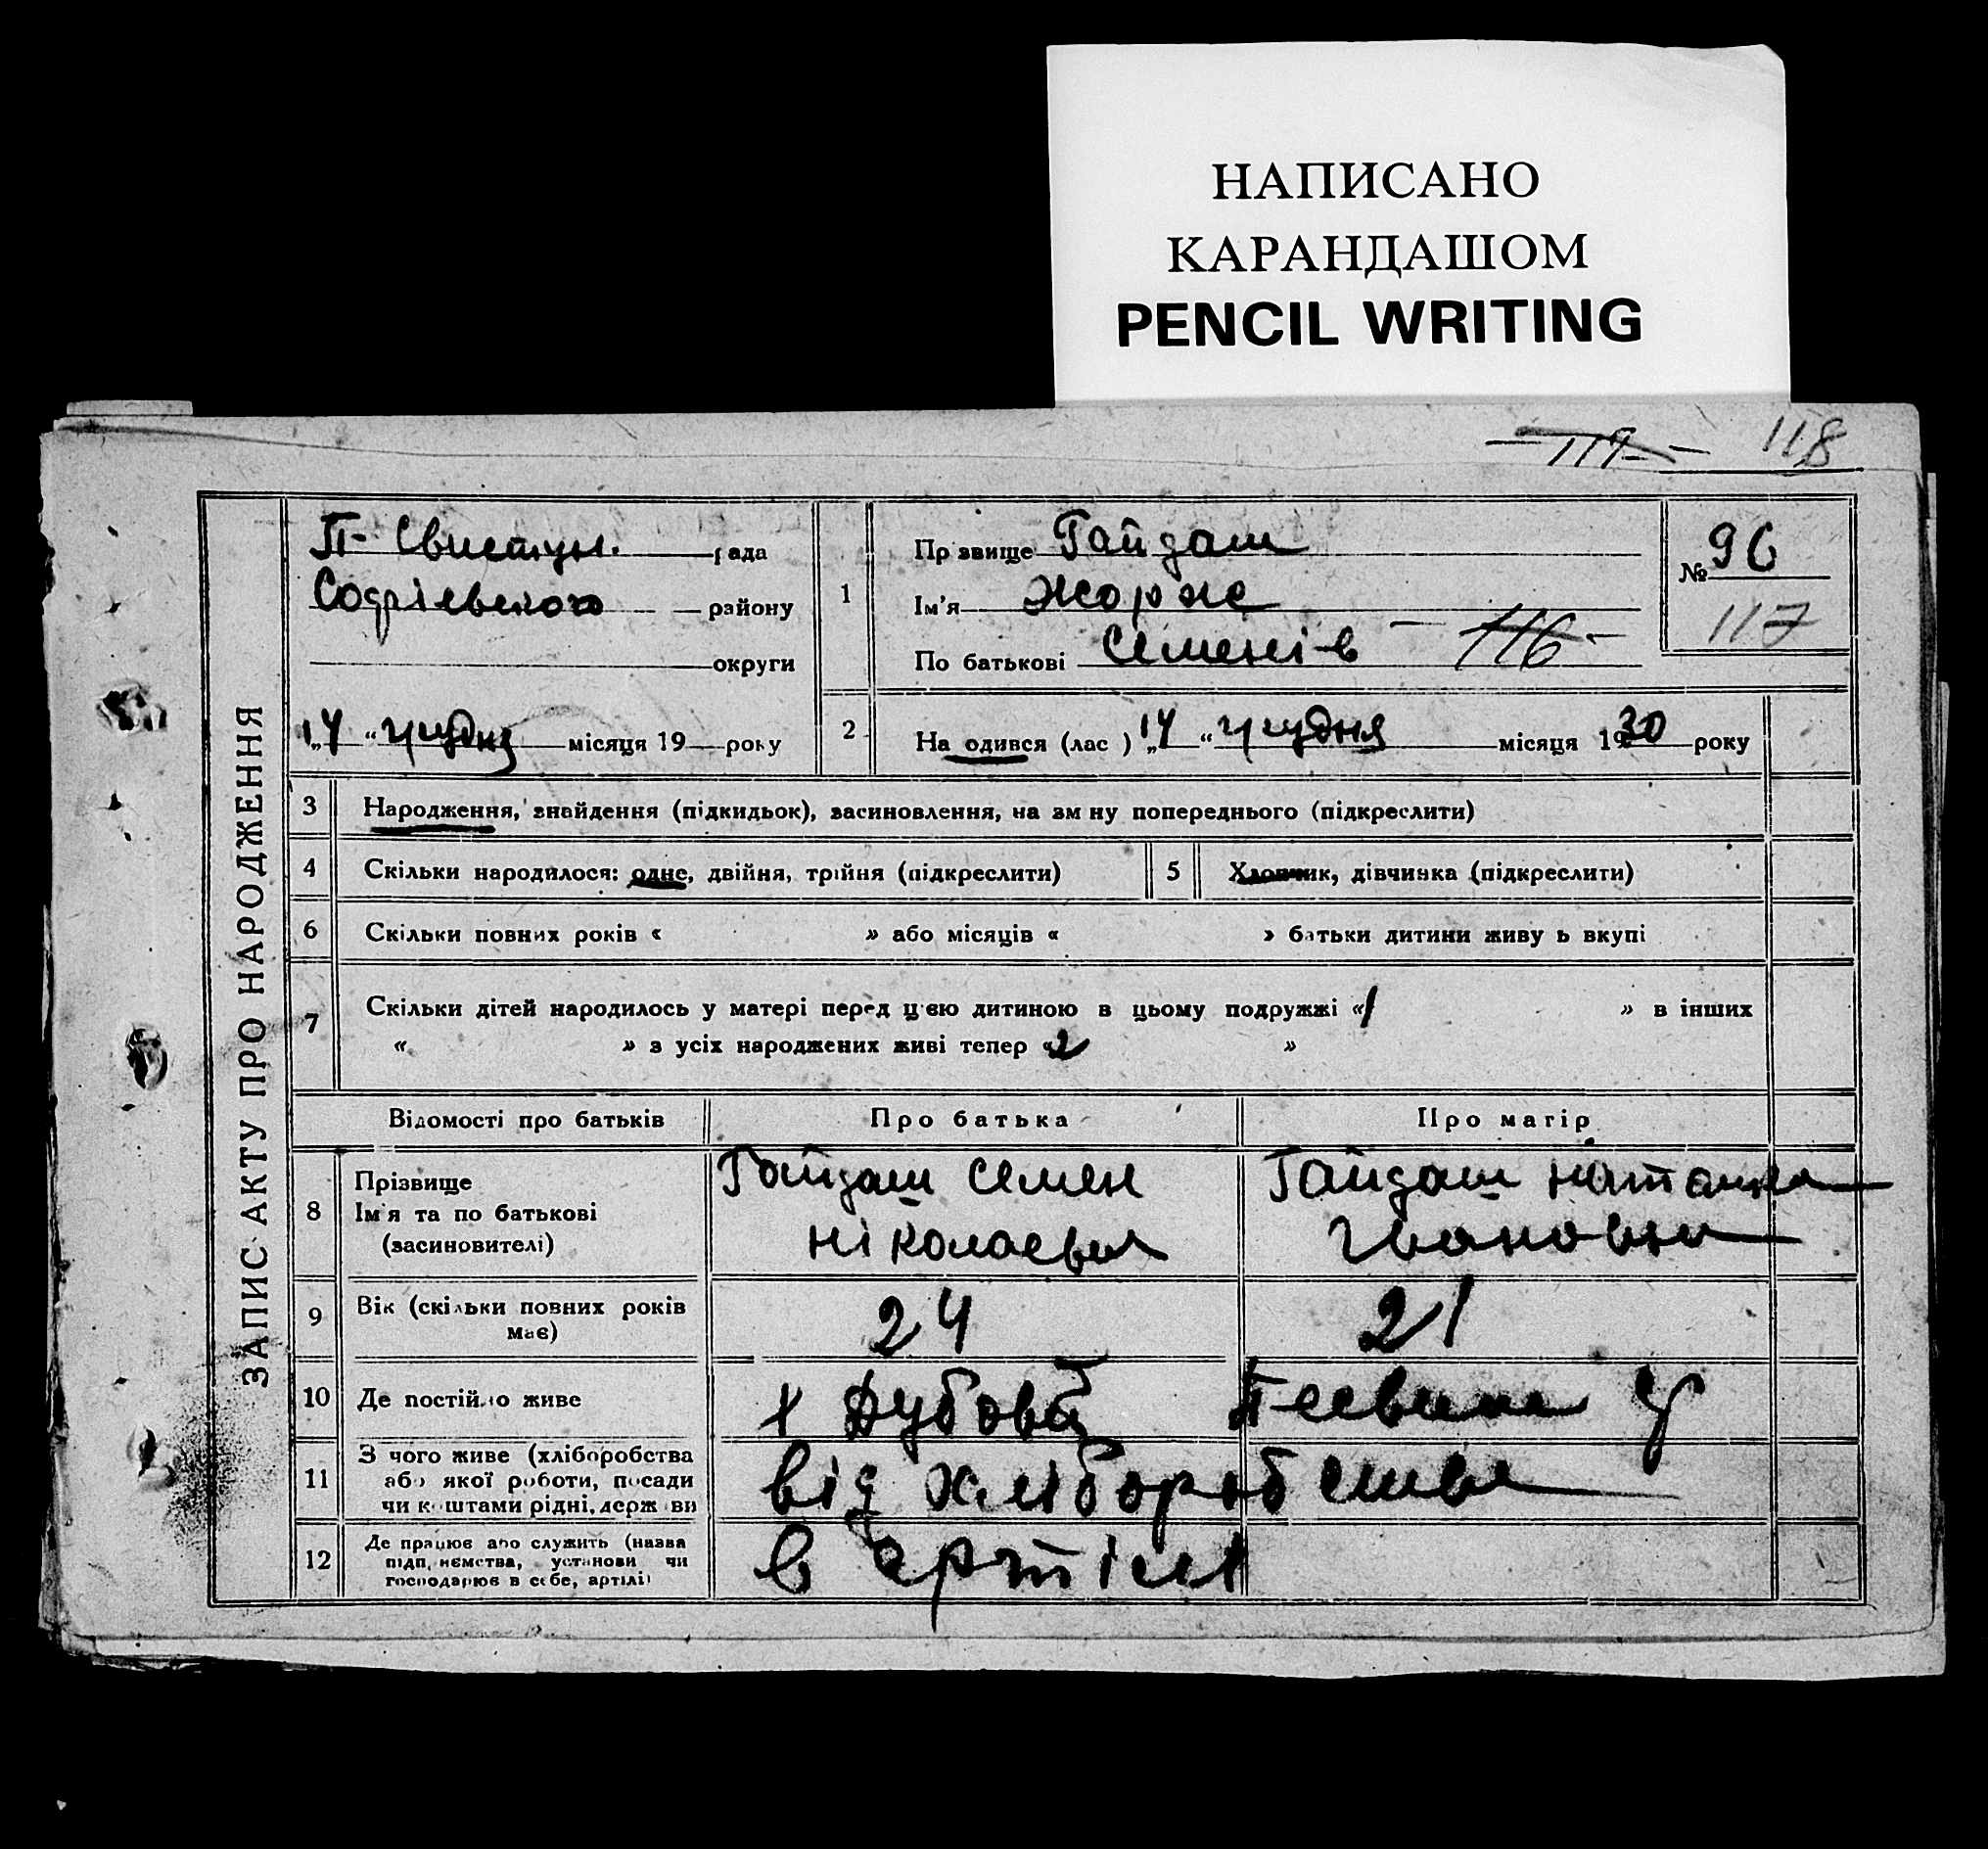 НАПИСАНО
КАРАНДАШОМ
PENCIL WRITING
119 118
ЗАПИС АКТУ ПРО НАРОДЖЕННЯ
П- Свистун. рада
району
округи
„14“ грудня місяця 19 року
1
Пр звище Гайдаш
Ім'я Жорже
По батькові Семенів 116
№ 96
117
2 На одився (лас ) „14“ грудня місяця 1930 року
3 Народження, знайдення (підкидьок), засиновлення, на зм ну попереднього (підкреслити)
4 Скільки народилося: одне, двійня, трійня (підкреслити) 5 Хлопчик, дівчинка (підкреслити)
6 Скільки повних років « » або місяців « » батьки дитини живу ь вкупі
7 Скільки дітей народилось у матері перед цією дитиною в цьому подружжі «1 » в інших
« » з усіх народжених живі тепер «2 »
Відомості про батьків Про батька Про матір
8 Прізвище
Ім'я та по батькові
(засиновителі)
Гайдаш Семен
Гайдаш
9 Вік (скільки повних років
має)
24 21
10 Де постійно живе х Дубова
11 З чого живе (хліборобства
або якої роботи, посади
чи коштами рідні, держ ви
від хліборобства
12 Де працює або служить (назва
підп, иємства, установи чи
господарює в себе, артілі)
в артілі